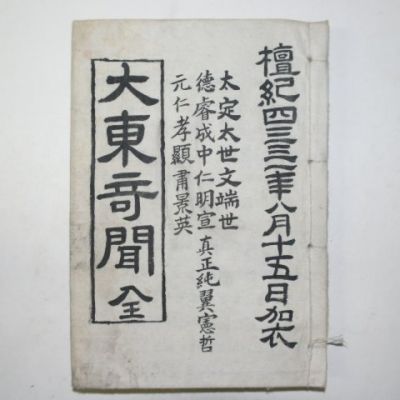 檀紀四三三一年八月十五日加衣
太定太世文端世
德睿成中仁明宣 真正純翼憲哲
元仁孝顯肅景英
大東奇聞 全